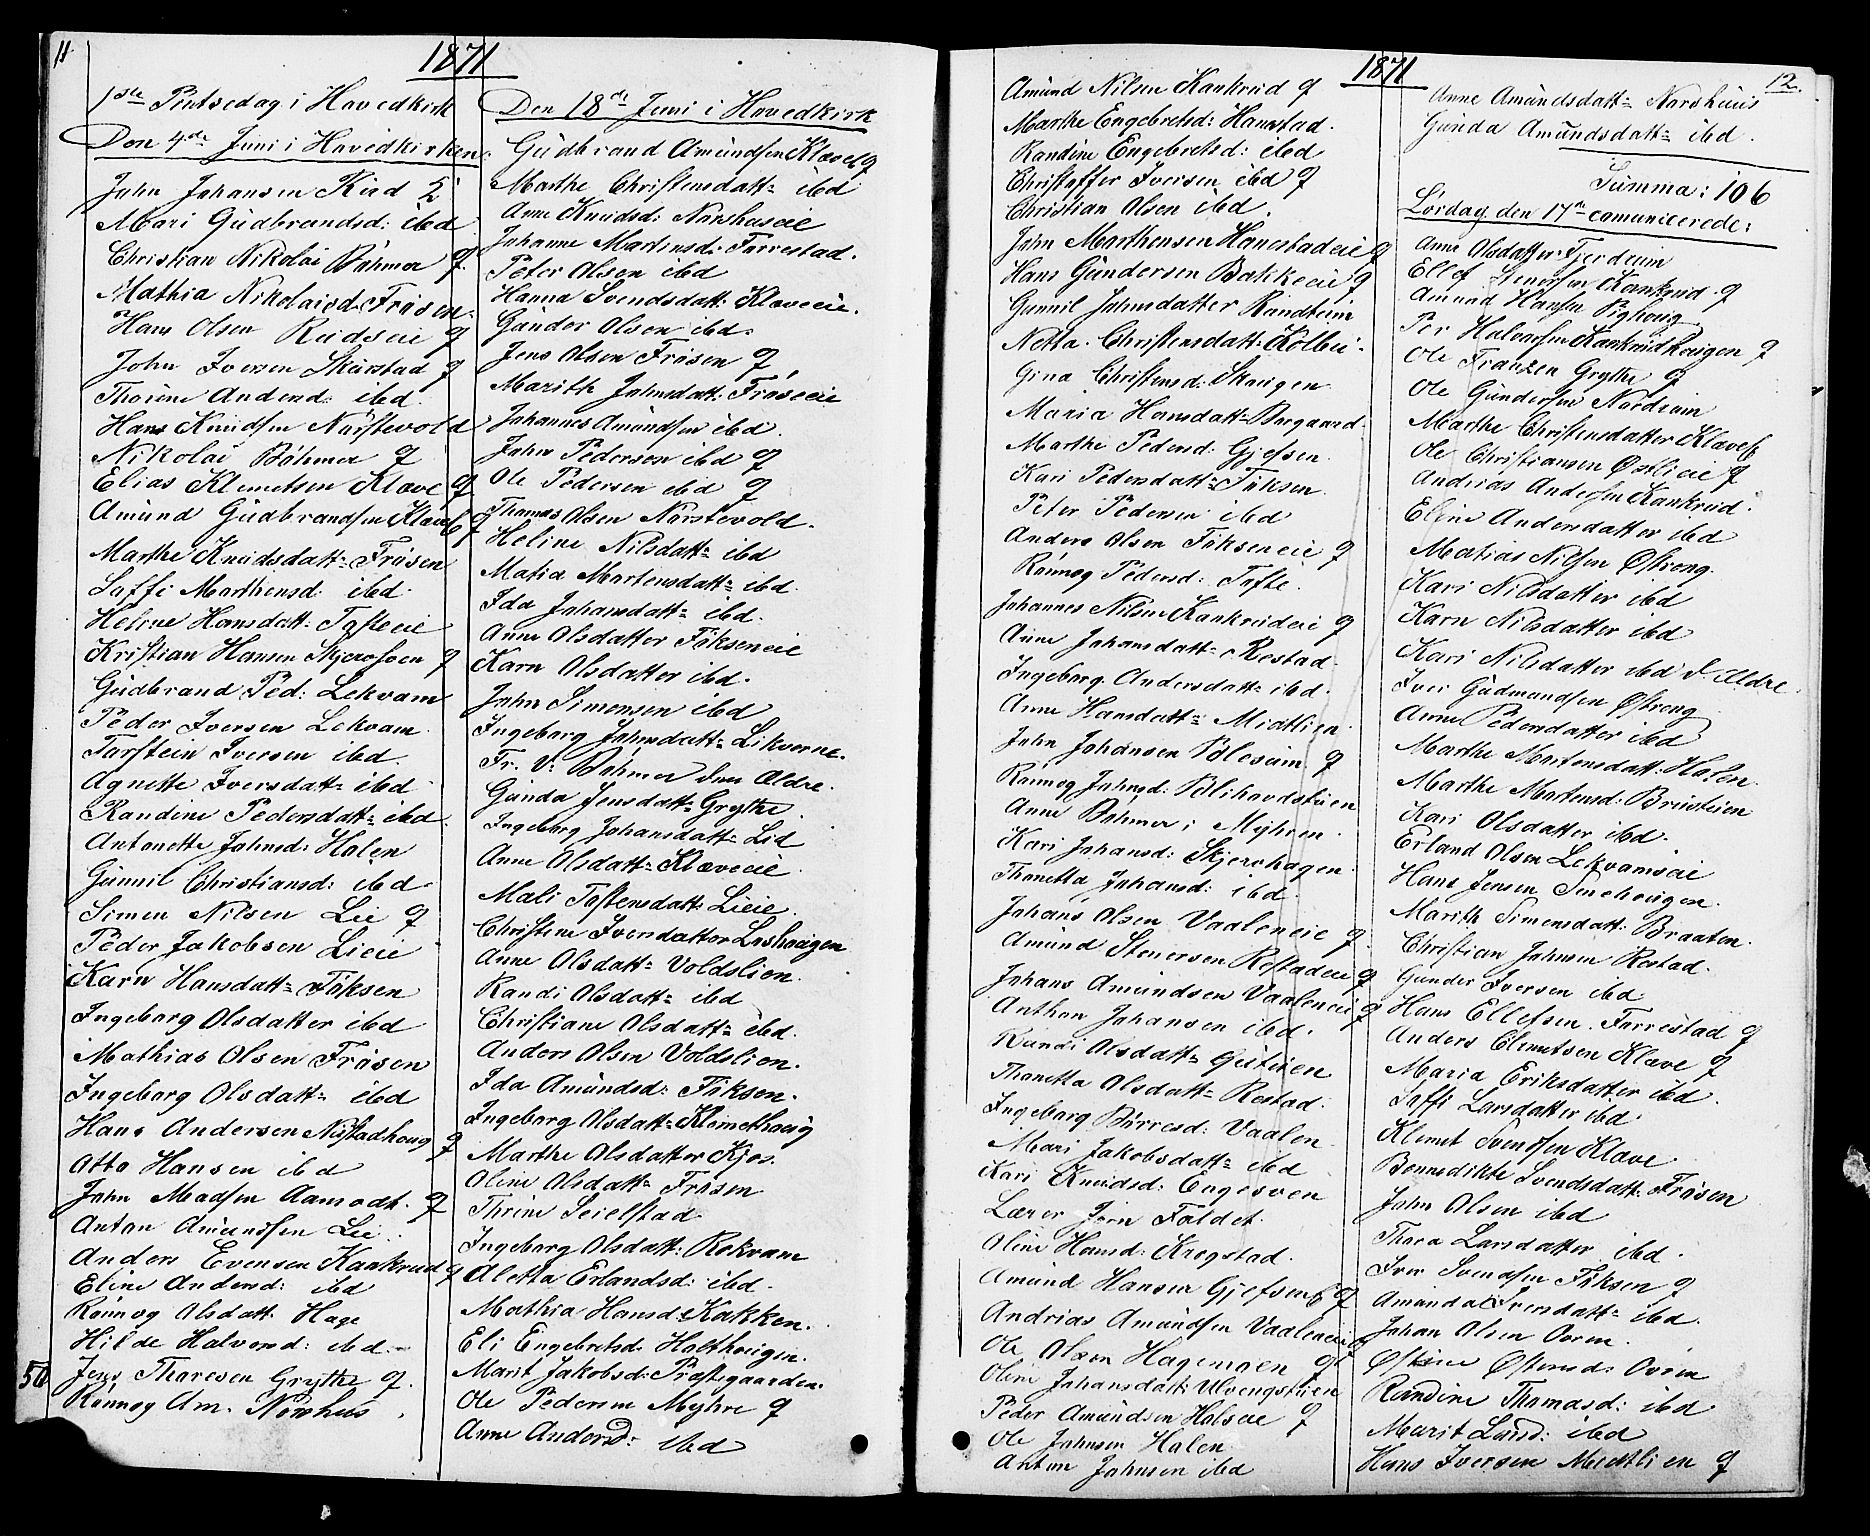 11
1871
1ste Pintsedag i Hovedkirk
Den 4de Juni i Hovedkirken
John Johansen Kiad 2
Mari Gudbrandsd: ibd
Christian Nikolai Böhmer q
Mathia Nikolaisd: Frösen
Hans Olsen Rudseie q
John Iversen Skurstad q
Thorine Andersd: ibd
Hans Knudsen Nörstevold
Nikolai Böhmer q
Elias Klemetsen Klave q
Amund Gudbrandsen Klæve q
Marthe Knudsdatt= Frösen
Saffi Marthensd: ibd.
Heline Hansdatt= Tofteeie
Kristian Hansen Skjeråsen q
Gudbrand Ped: Lekvam
Peder Iversen Lekvam
Torstein Iversen ibd.
Agnette Iversdatt= ibd
Randine Pedersdatt= ibd.
Antonette Johnsd: Holen
Gunnil Christiansd: ibd
Simen Nilsen Lie q
Peder Jakobsen Lieie
Karn Hansdatt= Föksen
Ingeborg Olsdatter ibd
Mathias Olsen Frösen
Ingeborg Olsdatt= ibd
Hans Andersen Nustadhoug q
Otto Hansen ibd
John Madsen Aamodt. q
Anton Amundsen Lie
Anders Evensen Kankrud q
Eline Andersd: ibd
Rönnog Olsdatt: Hage
Hilde Halvorsd: ibd.
50 Jens Thoresen Grytte q.
Rönnog Am. Nörshus.
Den 18de Juni i Hovedkirk
Gudbrand Amundsen Klæve q
Marthe Christensdatt= ibd
Anne Knudsd: Nörshuseie
Johanne Martinsd: Torrestad.
Peter Olsen ibd
Hanna Svendsdatt: Klaveeie.
Gunder Olsen ibd.
Jens Olsen Frösen q
Marith Johnsdatt: Fröseeie
Johannes Amundsen ibd.
John Pedersen ibd q
Ole Pedersen ibd q
Thomas Olsen Nörstevold.
Heline Nilsdatt= ibd
Matia Martensdatt= ibd.
Ida Johansdatt= ibd.
Anne Olsdatter Fökseneie
Karn Olsdatter ibd.
John Simensen ibd
Ingeborg Johnsdatt= Likverne.
Fr. V: Böhmer den Ældre.
Gunda Jensdatt= Grytte
Ingeborg Johansdatt= Lid
Anne Olsdatt= Klæveeie
Mali Tostensdatt: Lieie.
Christine Iversdatter Lishougen
Anne Olsdatt= Voldslien
Randi Olsdatt= ibd
Christiane Olsdatt= ibd.
Anders Olsen Voldslien.
Ida Amundsd: Föksen.
Ingeborg Olsdatt= Klemethoug
Marthe Olsdatter Kjos.
Oline Olsdatt= Frösen
Thrine Seielstad
Ingeborg Olsdatt: Rokvam
Aletta Erlandsd: ibd.
Mathia Hansd: Kakken.
Eli Engebretsd: Holthougen.
Marit Jakobsd: Præstegaarden.
Ole Pedersen Myhre q
Anne Andersd: ibd
12.
1871
Amund Nilsen Kankrud q
Marthe Engebretsd: Hanestad.
Randine Engebretsd: ibd
Christoffer Iversen ibd q
Christian Olsen ibd.
John Marthensen Hanestadeie q
Hans Gundersen Bakkeeie q
Gunnil Johnsdatter Randteim
Netta Christensdatt: Kolbu.
Gina Christensd: Skougen
Maria Hansdatt= Borgaard.
Marthe Pedersd: Gjefsen
Kari Pedersdatt= Föksen
Peter Pedersen ibd
Anders Olsen Fökseneie q
Rönnog Pedersd: Tofte
Johannes Nilsen Kankrudeie q
Anne Johansdatt= Restad.
Ingeborg Andersdatt= ibd.
Anne Hansdatt= Midtlien
John Johansen Blesum q
Rönnog Johnsd: Blihovdstuen
Anne Böhmer i Myhren.
Kari Johansd: Skjervhagen.
Thonetta Johansd: ibd.
Johans Olsen Vaaleneie q
Amund Stenersen Rostadeie q
Johans Amundsen Vaaleneie q
Anthon Johansen ibd.
Randi Olsdatt= Gistuen
Thonetta Olsdatt= Restad.
Ingeborg Börresd: Vaalen
Mari Jakobsdatt= ibd
Kari Knudsd: Engesveen
Lærer Jörn Foldet.
Oline Hansd: Krogstad.
Amund Hansen Gjefsen q
Andrias Amundsen Vaaleneie
Ole Olsen Hagemoen q
Oline Johansdatt: Ulvengstuen
Peder Amundsen Holseie q
Ole Johnsen Holen.
Anton Johnsen ibd
Anne Amundsdatt= Norshuus
Gunda Amundsdatt= ibd.
Summa: 106
Lördag den 17de comunicerede:
Anne Olsdatter Fjerdeim
Ellef Stenersen Kankrud q
Amund Hansen Pighoug
Per Halvorsen Kankrudhougen q
Ole Franzen Grytte q
Ole Gundersen Nordrum
Marthe Christensdatter Klæve
Ole Christiansen Östlieie q
Andrias Andersen Kankrud.
Eline Andersdatter ibd
Matias Nilsen Östreng.
Kari Nilsdatter ibd
Karn Nilsdatter ibd
Kari Nilsdatter ibd d. Ældre.
Iver Gudmundsen Östreng
Anne Pedersdatter ibd
Marthe Mortensdatt: Holen
Marthe Mortensd: Brustuen
Kari Olsdatter ibd.
Erland Olsen Lekvamseie
Hans Jensen Snehougen.
Marith Simensdatt: Braaten.
Christian Johnsen Restad.
Gunder Iversen ibd
Hans Ellefsen Torrestad q
Anders Clemetsen Klave q
Maria Eriksdatter ibd.
Saffi Larsdatter ibd
Klemet Svendsen Klave
Bennedikte Svendsdatt. Frösen
John Olsen ibd
Thora Larsdatter ibd.
Iver Svendsen Föksen q
Amunda Iversdatt= ibd.
Johan Olsen Ovren.
Östine Östensd: Ovren
Randine Thomasd: ibd
Marit Larsd: ibd
Hans Iversen Medtlien q